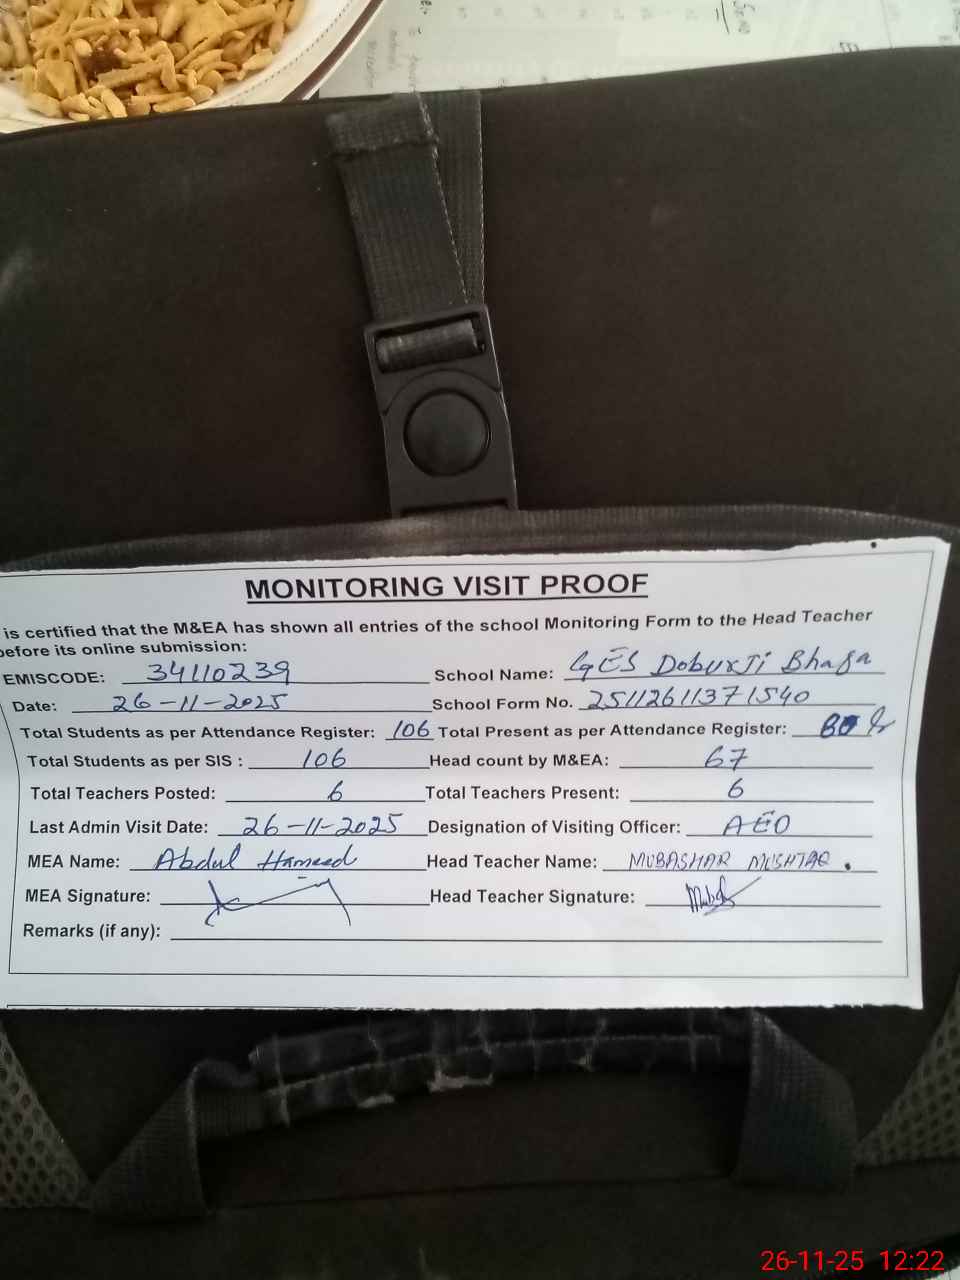 MONITORING VISIT PROOF
is certified that the M&EA has shown all entries of the school Monitoring Form to the Head Teacher
before its online submission:
EMISCODE: 34110239 School Name: GES Doburji Bhaga
Date: 26-11-2025 School Form No. 25112611371540
Total Students as per Attendance Register: 106 Total Present as per Attendance Register:
Total Students as per SIS : 106 Head count by M&EA: 67
Total Teachers Posted: 6 Total Teachers Present: 6
Last Admin Visit Date: 26-11-2025 Designation of Visiting Officer: AEO
MEA Name: Abdul Hameed Head Teacher Name: MUBASHAR MUSHTAQ.
MEA Signature: Head Teacher Signature:
Remarks (if any):
26-11-25 12:22